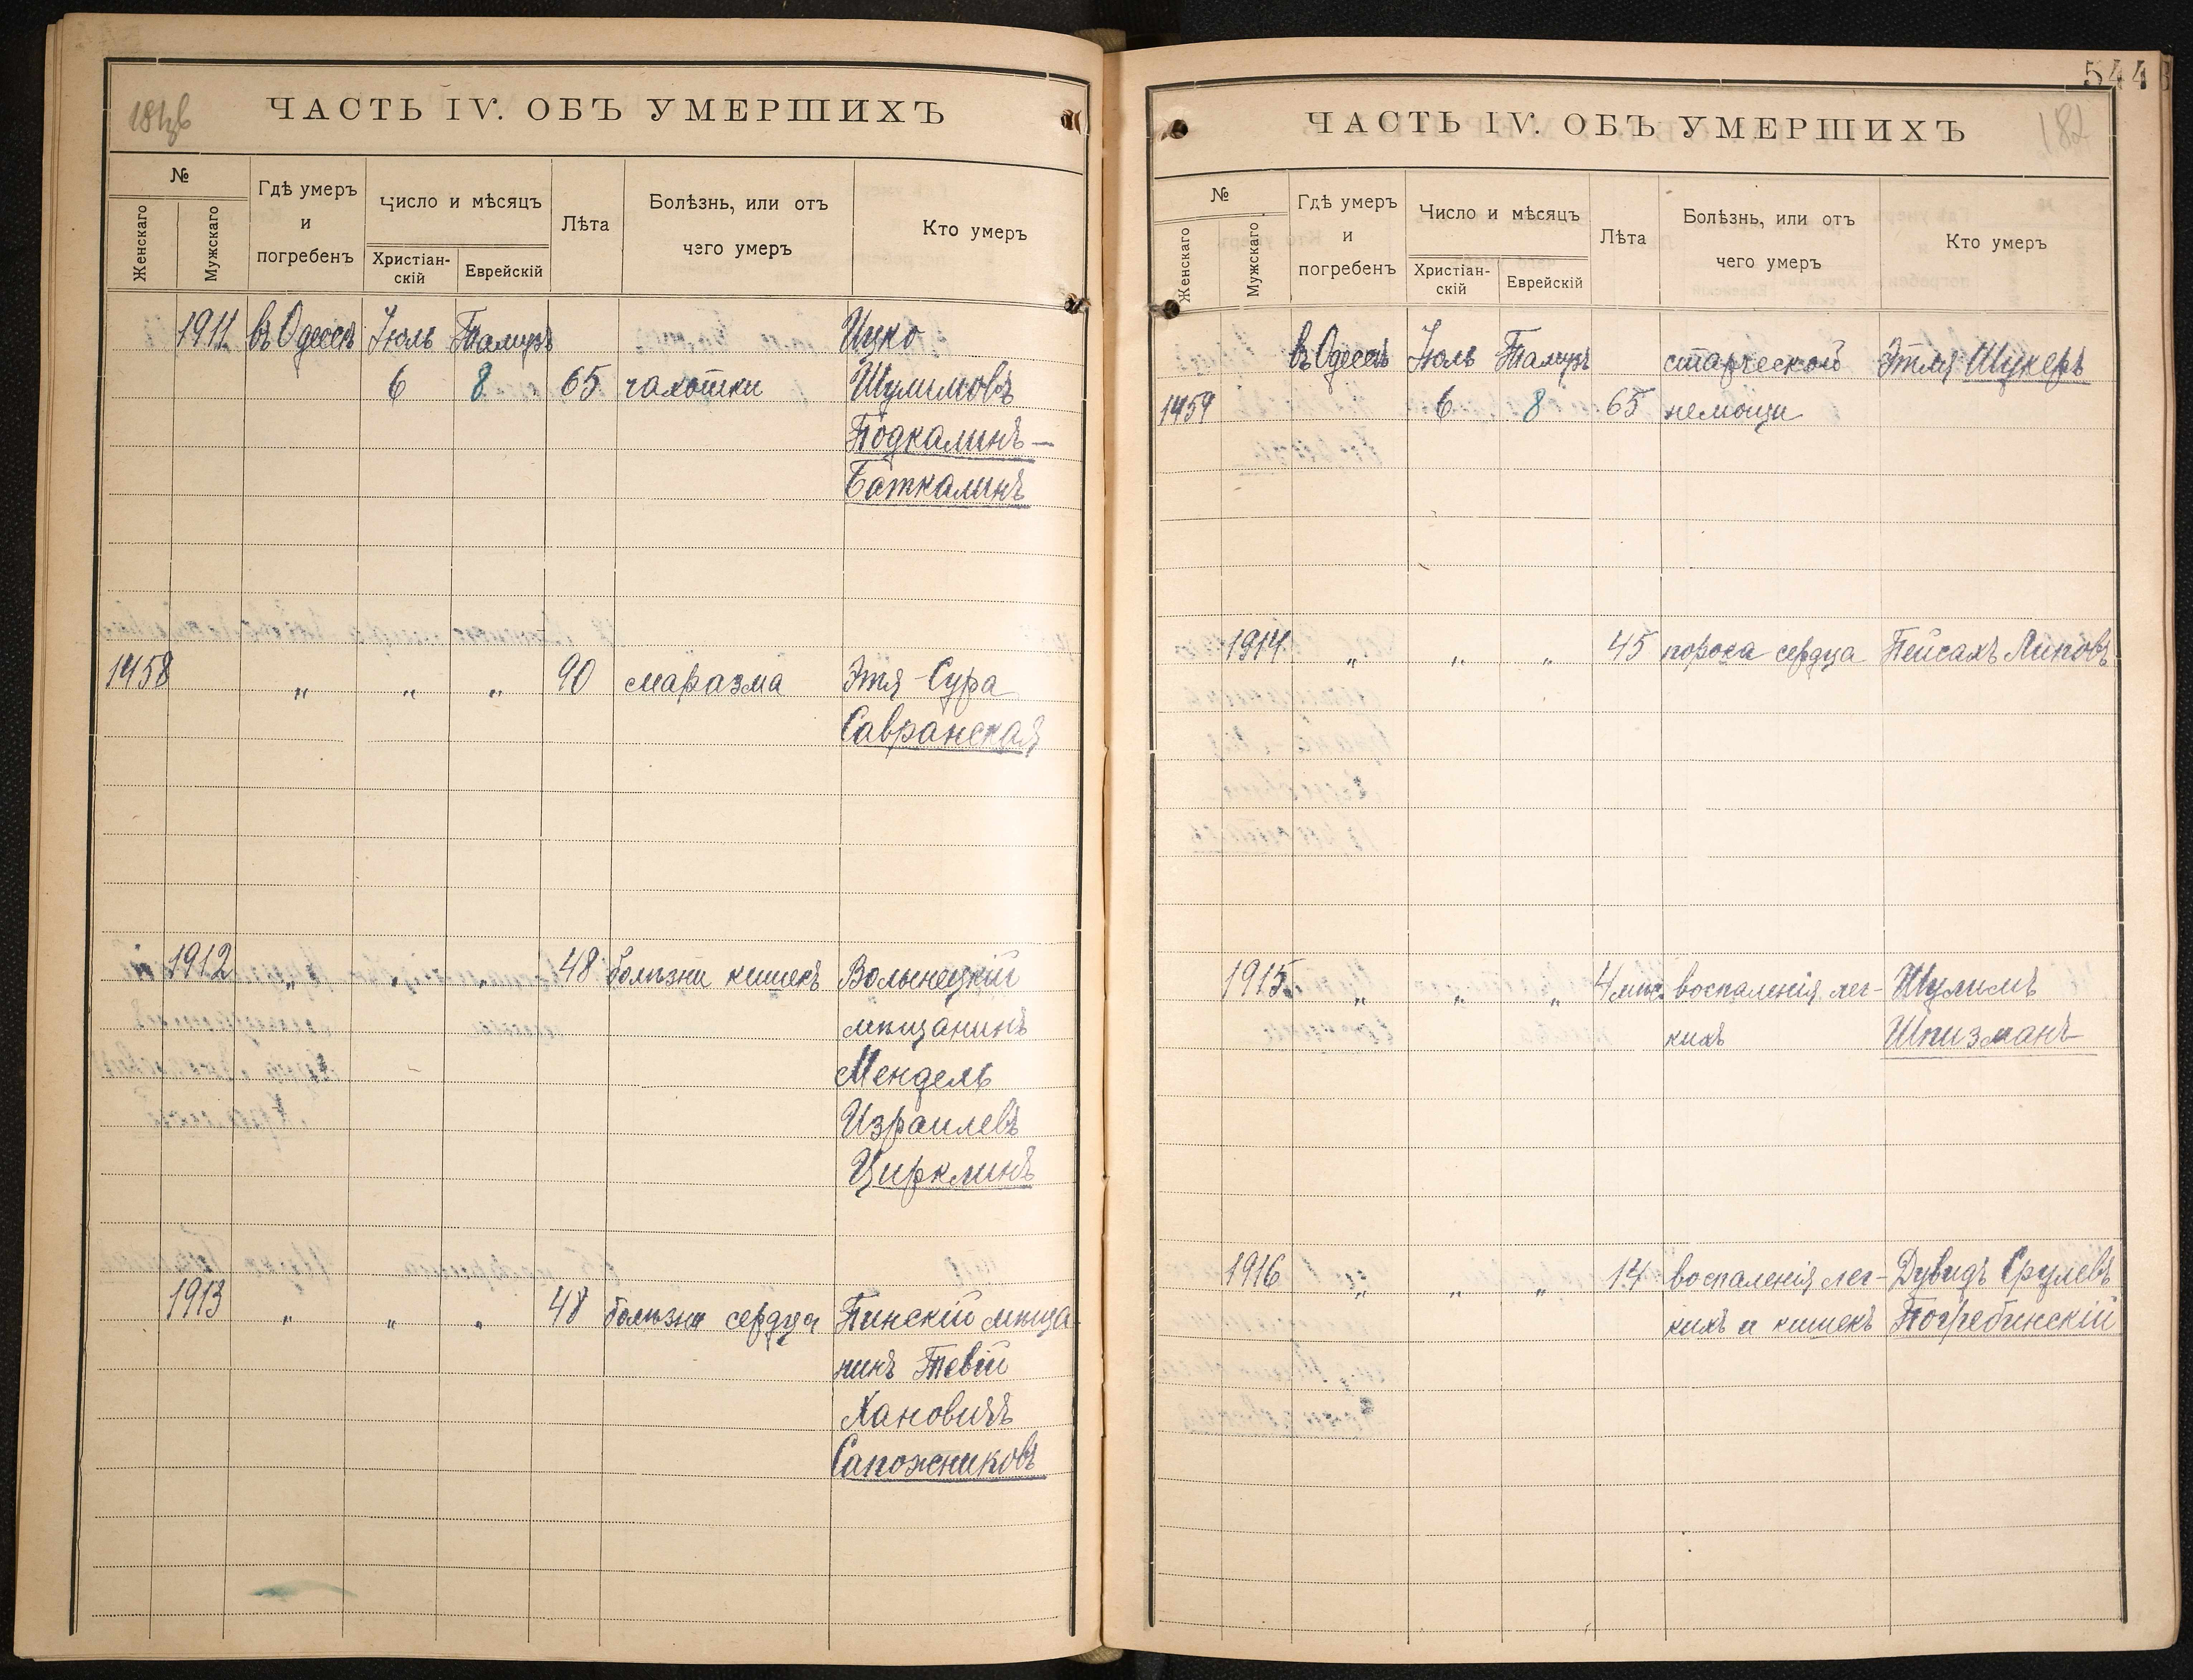 181 об
ЧАСТЬ IV. ОБЪ УМЕРШИХЪ
№
Женскаго
Мужскаго
Гдѣ умеръ
и
погребенъ
Число и мѣсяцъ
Христіан-
скій
Еврейскій
Лѣта
Болѣзнь, или отъ
чего умеръ
Кто умеръ
1911 въ Одессѣ Іюль Тамузъ Ицко
6 8 65 чахотки Шулимовъ
Подкалинъ—
Боткалинъ
1458 " " " 90 маразма Этя-Сура
Савранская
1912 " " " 48 болѣзни кишекъ Волынецкій
мѣщанинъ
Мендель
Израилевъ
Цирклинъ
1913 " " " 48 болѣзни сердца Пинскій мѣща-
нинъ Тевій
Хановичъ
Сапожниковъ
544
182
ЧАСТЬ IV. ОБЪ УМЕРШИХЪ
№
Женскаго
Мужскаго
Гдѣ умеръ
и
погребенъ
Число и мѣсяцъ
Христіан-
скій
Еврейскій
Лѣта
Болѣзнь, или отъ
чего умеръ
Кто умеръ
въ Одессѣ Іюль Тамузъ старческой Этля Шукеръ
1459 6 8 65 немощи
1914 " " " 45 порока сердца Пейсахъ Липовъ
1915 " " " 4 мѣс. воспаленія лег- Шулимъ
кихъ Шпизманъ
1916 " " " 14 воспаленія лег- Дувидъ Срулевъ
кихъ и кишекъ Погребинскій